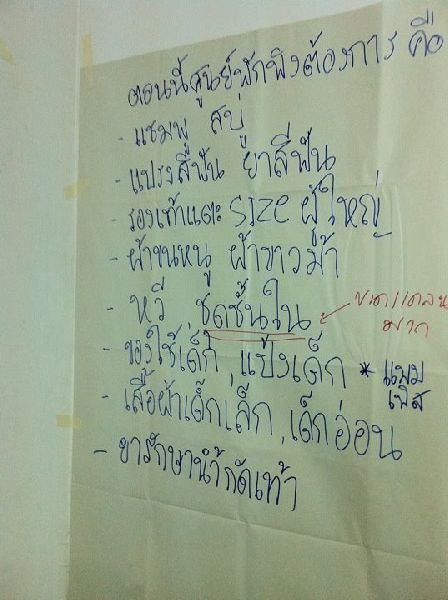 ตอนนี้ศูนย์พักพิงต้องการ คือ
- แชมพู สบู่
- แปรงสีฟัน ยาสีฟัน
- รองเท้าแตะ size ผู้ใหญ่
- ผ้าขนหนู ผ้าขาวม้า
- หวี ชุดชั้นใน ← ขาดแคลน
มาก
- ของใช้เด็ก , แป้งเด็ก * แพม
เพิส
- เสื้อผ้าเด็กเล็ก , เด็กอ่อน
- ยารักษาน้ำกัดเท้า